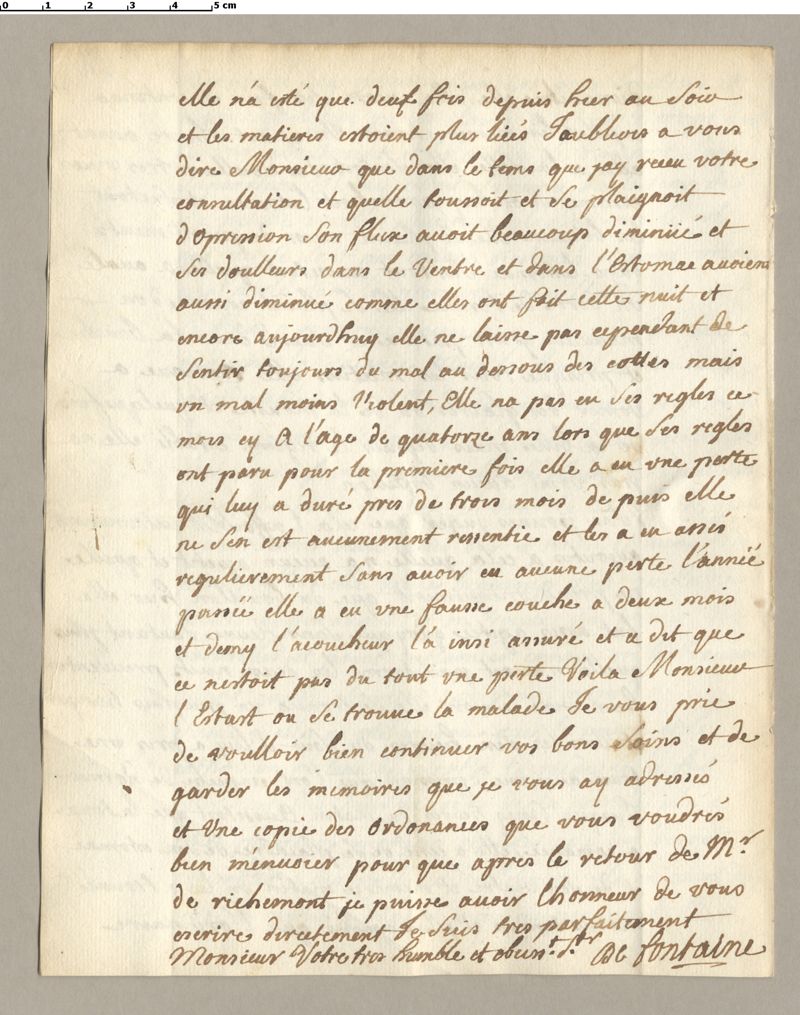 0 1 2 3 4 5 cm
elle n'a esté que deux fois depuis hier au soir
et les matieres estoient plus liées J'aubliois a vous
dire Monsieur que dans le tems que j'ay receu votre
consultation et quelle toussoit et se plaignoit
d'opression son flux avoit beaucoup diminüé et
ses doulleurs dans le Ventre et dans l'Estomac avoient
aussi diminué comme elles ont fait cette nuit et
encore aujourdhuy elle ne laisse pas cependant de
sentir toujours du mal au dessous des cottes mais
un mal moins Violent, Elle na pas eu ses regles ce
mois cy A l'age de quatorze ans lors que ses regles
ont paru pour la premiere fois elle a eu une perte
qui luy a duré pres de trois mois de puis elle
ne s'en est aucunement ressentie et les a eu assés
regulierement sans avoir eu aucune perte l'anneé
passeé elle a eu une fausse couche a deux mois
et demy l'acoucheur l'a insi assuré et a dit que
ce n'estoit pas du tout une perte Voila Monsieur
l'Estast ou se trouve la malade Je vous prie
de voulloir bien continuer vos bons soins et de
garder les memoires que je vous ay adressés
et Une copie des Ordonances que vous voudrés
bien m'énvoier pour que apres le retour de Mr
de richemont je puisse avoir l'honneur de vous
escrire directement Je suis tres parfaitement
Monsieur Votre tres humble et obeisst. Str De fontaine